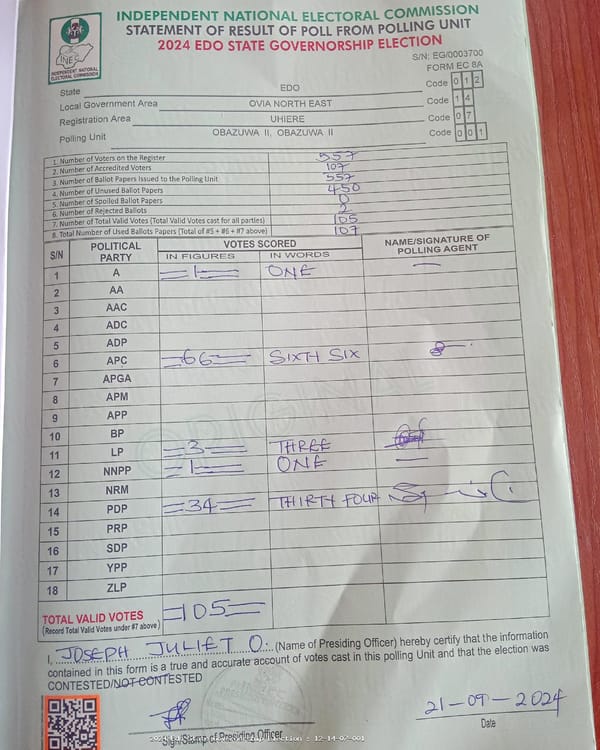 INDEPENDENT NATIONAL ELECTORAL COMMISSION
STATEMENT OF RESULT OF POLL FROM POLLING UNIT
2024 EDO STATE GOVERNORSHIP ELECTION
INEC
INDEPENDENT NATIONAL ELECTORAL COMMISSION
S/N: EG/0003700
FORM EC 8A
State EDO Code 0 1 2
Local Government Area OVIA NORTH EAST Code 1 4
Registration Area UHIERE Code 0 7
Polling Unit OBAZUWA II, OBAZUWA II Code 0 0 1
1. Number of Voters on the Register 557
2. Number of Accredited Voters 107
3. Number of Ballot Papers Issued to the Polling Unit 557
4. Number of Unused Ballot Papers 450
5. Number of Spoiled Ballot Papers 0
6. Number of Rejected Ballots 2
7. Number of Total Valid Votes (Total Valid Votes cast for all parties) 105
8. Total Number of Used Ballots Papers (Total of #5 + #6 + #7 above) 107
S/N POLITICAL PARTY VOTES SCORED NAME/SIGNATURE OF POLLING AGENT
IN FIGURES IN WORDS
1 A 1 ONE
2 AA
3 AAC
4 ADC
5 ADP
6 APC 66 SIXTH SIX
7 APGA
8 APM
9 APP
10 BP
11 LP 3 THREE
12 NNPP 1 ONE
13 NRM
14 PDP 34 THIRTY FOUR
15 PRP
16 SDP
17 YPP
18 ZLP
ORIGINAL
TOTAL VALID VOTES 105
(Record Total Valid Votes under #7 above)
I, JOSEPH JULIET O. (Name of Presiding Officer) hereby certify that the information
contained in this form is a true and accurate account of votes cast in this polling Unit and that the election was
CONTESTED/NOT CONTESTED
21-09-2024
Sign/Stamp of Presiding Officer Date
: 12-14-07-001